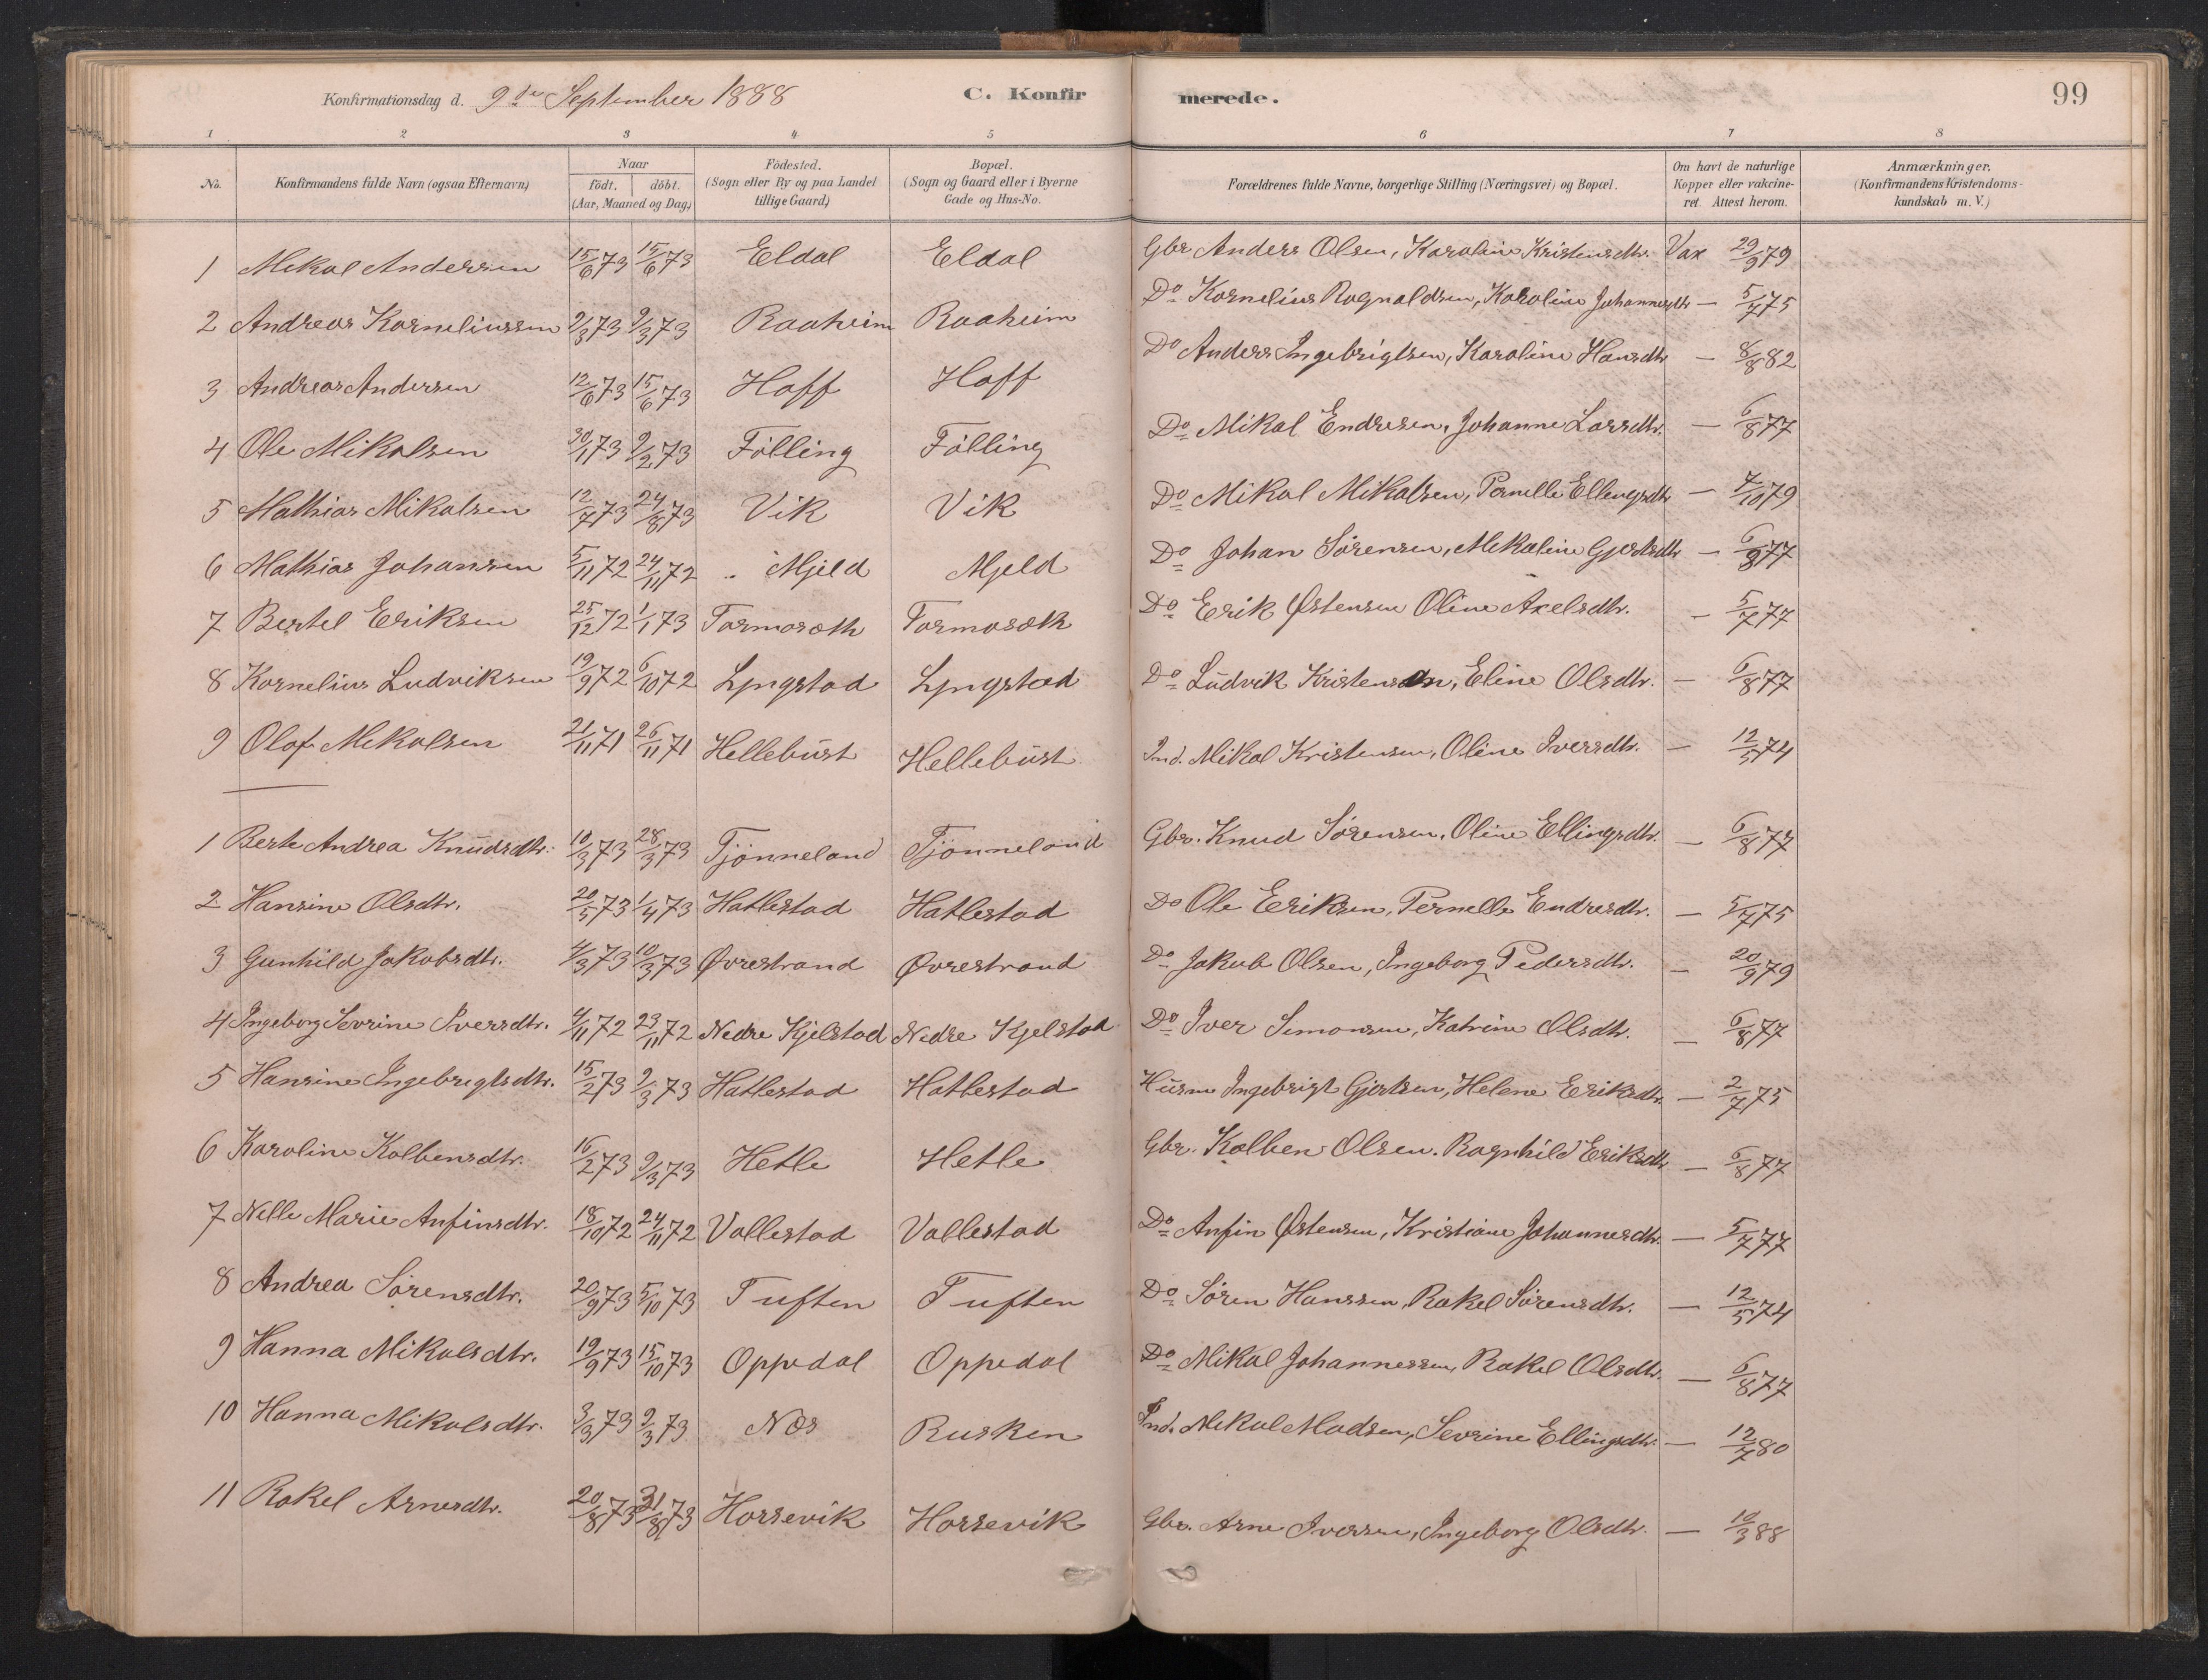 Konfirmationsdag d. 9de September 1888 C. Konfirmerede. 99
1 2 3 4 5 6 7 8
No. Konfirmandens fulde Navn (ogsaa Efternavn) Naar födt. döbt. (Aar, Maaned og Dag) Födested. (Sogn eller By og paa Landet tillige Gaard) Bopæl. (Sogn og Gaard eller i Byerne Gade og Hus-No. Forældrenes fulde Navne, borgerlige Stilling (Næringsvei) og Bopæl. Om havt de naturlige Kopper eller vakcineret. Attest herom. Anmærkninger. (Konfirmandens Kristendomskundskab m. V.)
1 Mikal Andersen 15/6 73 15/6 73 Eldal Eldal Gbr Anders Olsen, Karoline Kristensdtr. Vax 29/9 79
2 Andreas Korneliussen 2/3 73 9/3 73 Raaheim Raaheim Do Kornelius Rognaldsen, Karoline Johannesdtr — 5/7 75
3 Andreas Andersen 12/6 73 15/6 73 Hoff Hoff Do Anders Ingebrigtsen, Karoline Hansdtr — 8/8 82
4 Ole Mikalsen 30/1 73 9/2 73 Fölling Fölling Do Mikal Endresen, Johanne Larsdtr. — 6/8 77
5 Mathias Mikalsen 12/7 73 24/8 73 Vik Vik Do Mikal Mikalsen, Pernelle Ellengsdtr — 7/10 79
6 Mathias Johansen 5/11 72 24/11 72 Mjeld Mjeld Do Johan Sörensen, Mikaline Gjertsdtr — 6/8 77
7 Bertel Eriksen 25/12 72 1/1 73 Tormosæth Tormosæth Do Erik Østensen Oline Axelsdtr. — 5/7 77
8 Kornelius Ludviksen 19/9 72 6/10 72 Lyngstad Lyngstad Do Ludvik Kristensen, Eline Olsdtr. — 6/8 77
9 Olaf Mikalsen 21/11 71 26/11 71 Hellebust Hellebust Ind. Mikal Kristensen, Oline Iversdtr. — 12/5 74
1 Berte Andrea Knudsdtr. 10/3 73 28/3 73 Tjönneland Tjönneland Gbr. Knud Sörensen, Oline Ellingsdtr. — 6/8 77
2 Hansine Olsdtr. 20/5 73 1/4 73 Hatlestad Hatlestad Do Ole Eriksen, Pernelle Endresdtr. — 5/7 75
3 Gunhild Jakobsdtr. 4/3 73 10/3 73 Øvrestrand Øvrestrand Do Jakob Olsen, Ingeborg Pedersdtr. — 20/9 79
4 Ingeborg Sevrine Iversdtr. 4/11 72 23/11 72 Nedre Kjelstad Nedre Kjelstad Do Iver Simonsen, Katrine Olsdtr. — 6/8 77
5 Hansine Ingebrigtsdtr. 15/2 73 2/3 73 Hatlestad Hatlestad Husm Ingebrigt Gjertsen, Helene Eriksdtr. — 2/7 75
6 Karoline Kolbensdtr. 16/2 73 9/3 73 Hetle Hetle Gbr. Kolben Olsen. Ragnhild Eriksdtr — 6/8 77
7 Nelle Marie Anfinsdtr. 18/10 72 24/11 72 Vallestad Vallestad Do Anfin Østensen, Kristiane Johannesdtr. — 5/7 77
8 Andrea Sörensdtr. 20/9 73 5/10 73 Tuften Tuften Do Sören Hanssen, Rakel Sörensdtr. — 12/5 74
9 Hanna Mikalsdtr. 19/9 73 15/10 73 Oppedal Oppedal Do Mikal Johannessen, Rakel Olsdtr. — 6/8 77
10 Hanna Mikalsdtr. 3/3 73 9/3 73 Næs Rusken Ind. Mikal Madsen, Sevrine Ellingsdtr. — 12/7 80
11 Rakel Arnesdtr. 20/8 73 31/8 73 Horsevik Horsevik Gbr. Arne Iversen, Ingeborg Olsdtr. — 10/3 88